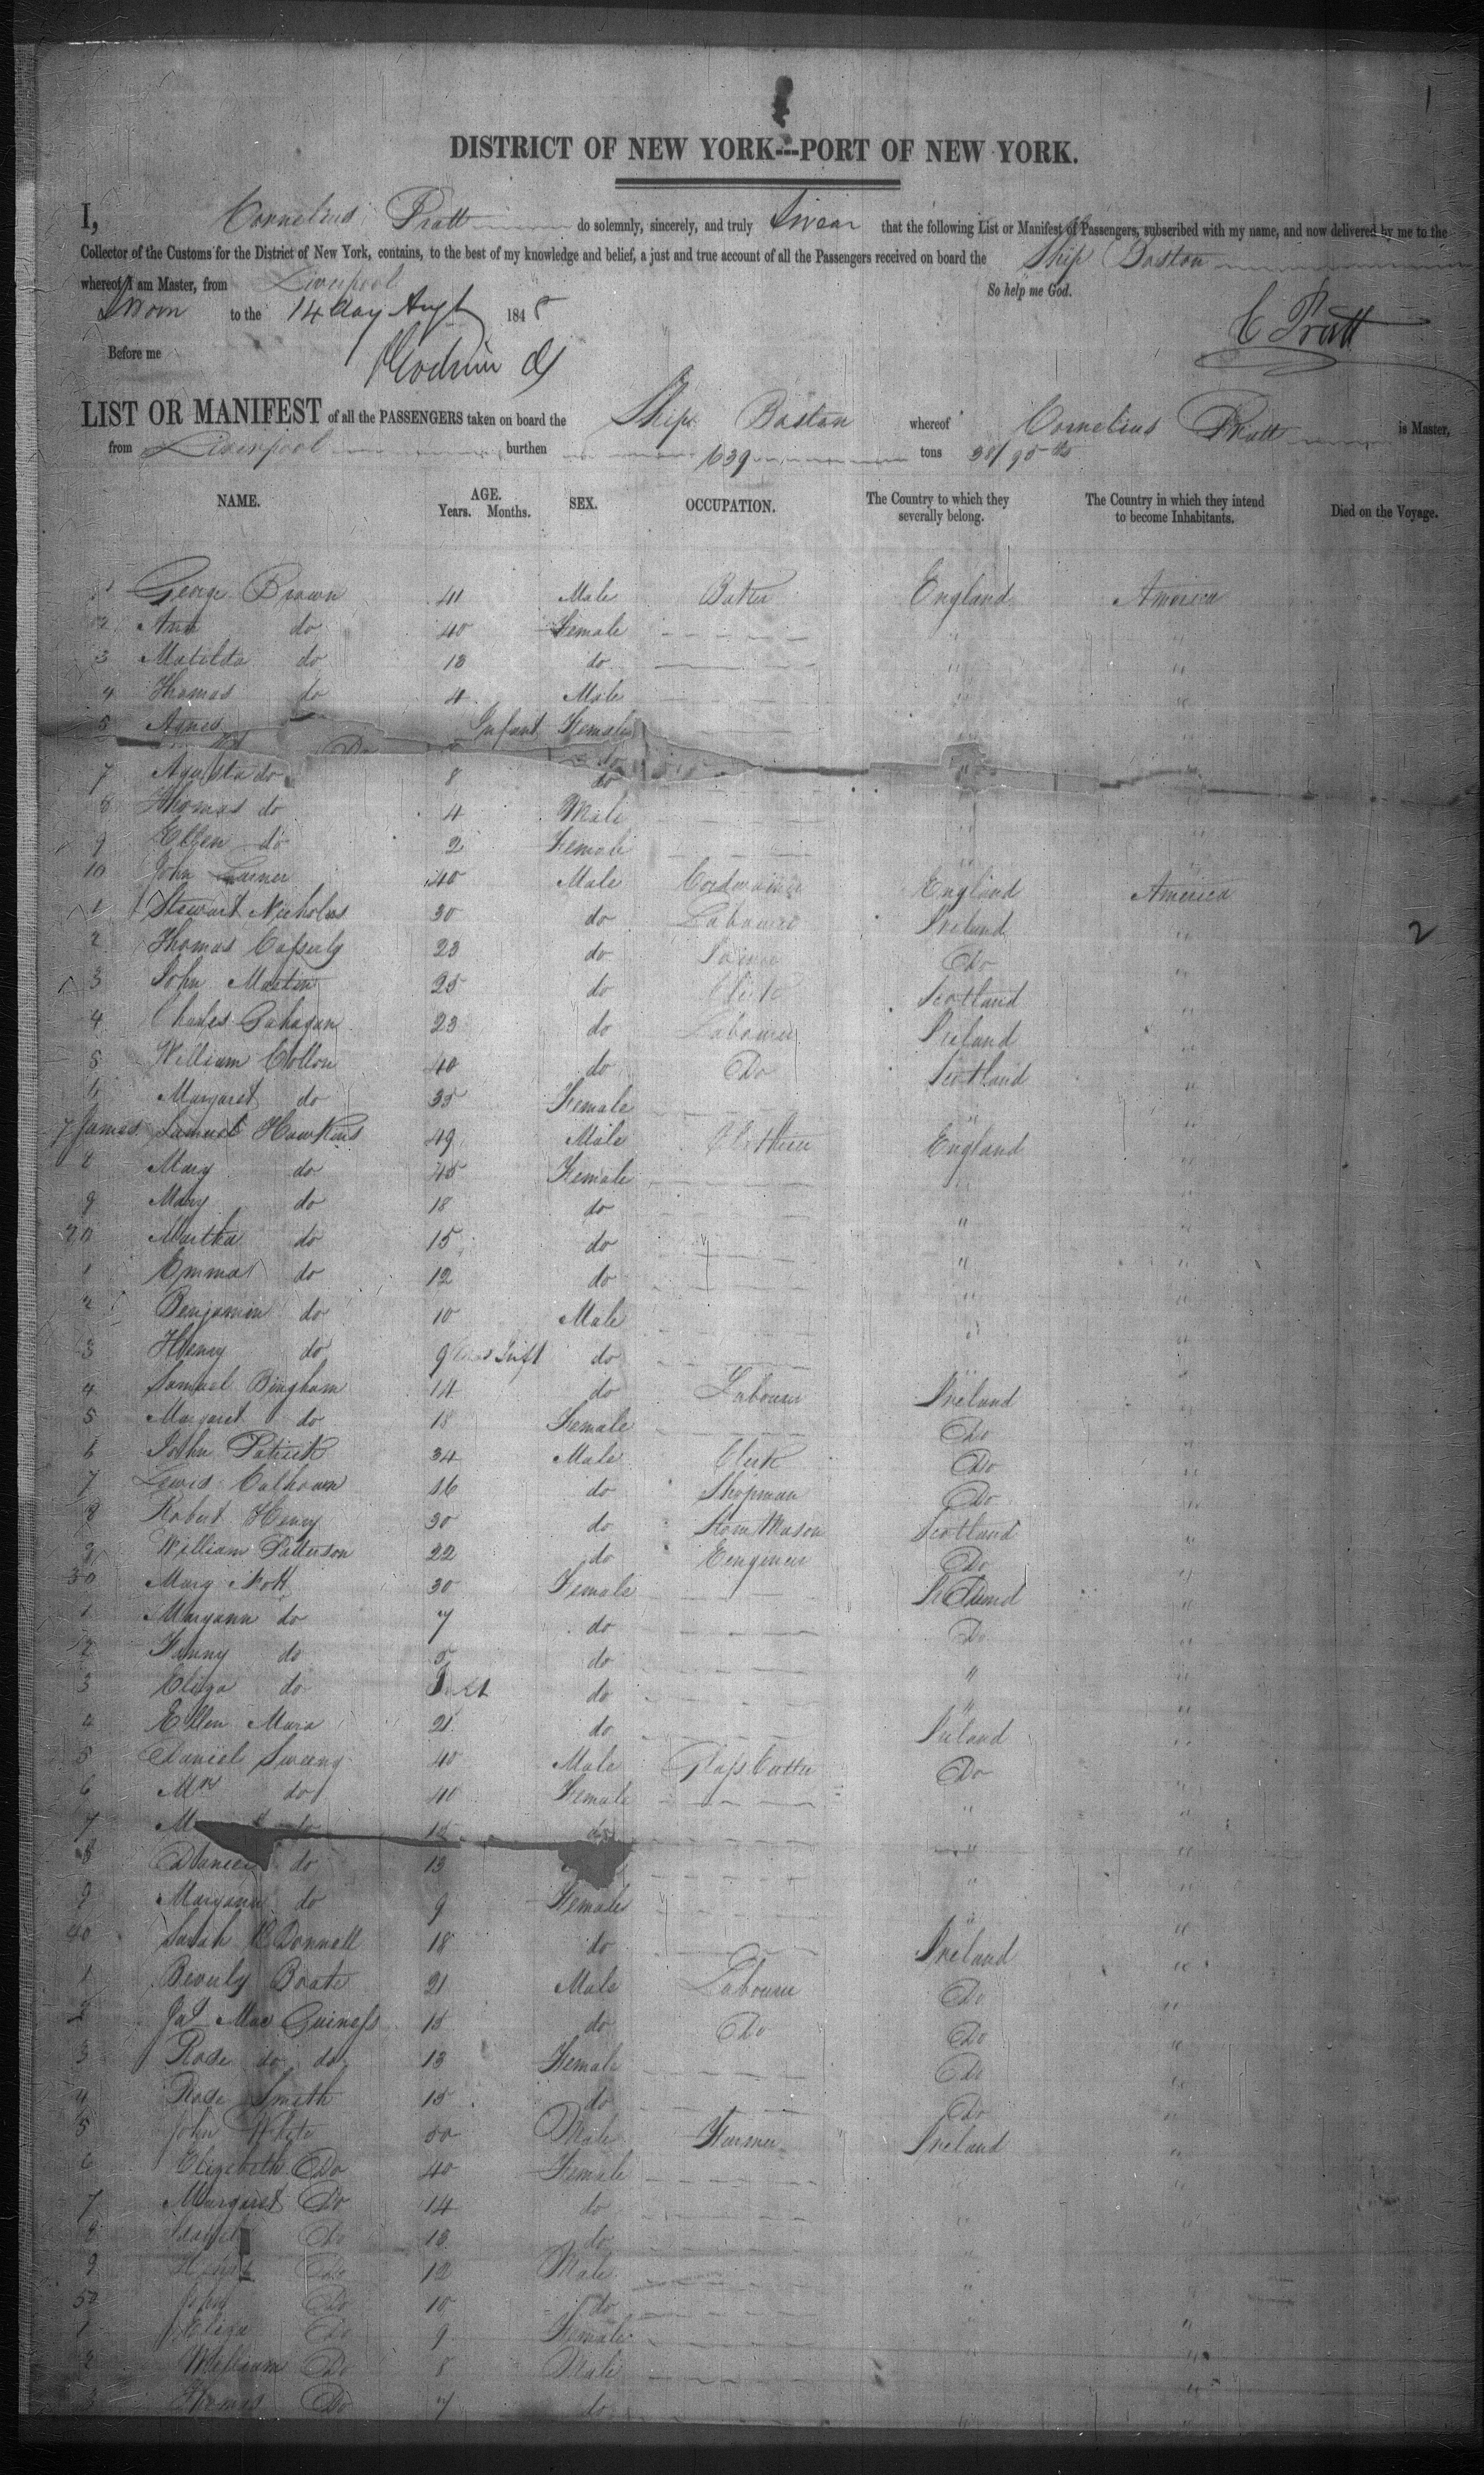 DISTRICT OF NEW YORK---PORT OF NEW YORK.
I, Cornelius Pratt do solemnly, sincerely, and truly Swear that the following List or Manifest of Passengers, subscribed with my name, and now delivered by me to the
Collector of the Customs for the District of New York, contains, to the best of my knowledge and belief, a just and true account of all the Passengers received on board the Ship Boston
whereof I am Master, from Liverpool So help me God.
Sworn to the 14 day Augt 1848 C Pratt
Before me
LIST OR MANIFEST of all the PASSENGERS taken on board the Ship Boston whereof Cornelius Pratt is Master,
from Liverpool burthen 639 tons 38/95ths
NAME. AGE. Years. Months. SEX. OCCUPATION. The Country to which they severally belong. The Country in which they intend to become Inhabitants. Died on the Voyage.
1 Brown 41 Male England America
2 Ann do 40 Female " "
3 Matilda do 13 do " "
4 Thomas do 4 Male " "
5 Agnes Infant Female " "
Do do "
7 Agusta do 8 do "
8 Thomas do 4 Male " "
9 Ellen do 2 Female " "
10 John 40 Male England America
1 Stewart Nicholas 30 do Labourer Ireland "
2
2 Thomas 23 do Do "
3 John Martin 25 do Clerk Scotland "
4 Charles Gahagan 23 do Labourer Ireland "
5 William 40 do Do Scotland "
6 Margaret do 35 Female " "
7 James Samuel Hawkins 49 Male England "
8 Mary do 45 Female " "
9 Mary do 18 do " "
20 Martha do 15 do " "
1 Emma do 12 do " "
2 Benjamin do 10 Male " "
3 Henry do 9 do " "
4 Samuel Bingham 14 do Labourer Ireland "
5 Margaret do 18 Female Do "
6 John Patrick 34 Male Clerk Do "
7 Lewis Calhoun 16 do Shopman Do "
8 Robert Henry 30 do Stone Mason Scotland "
9 William Patterson 22 do Engineer Do "
30 Mary Nott 30 Female "
1 Maryann do 7 do Do "
2 Fanny do 5 do " "
3 Eliza do do " "
4 Ellen Mara 21 do Ireland "
5 Daniel Sweeny 40 Male Glass Cutter Do "
6 Mrs do 40 Female " "
7 M do 15 do " "
8 Daniel do 13 " "
9 Maryann do 9 Female " "
40 Sarah McDonnell 18 do Ireland "
1 Beverly Boate 21 Male Labourer Do "
2 Mac Guiness 15 do Do Do "
3 Rose do do 13 Female Do "
4 Rose Smith 15 do Do "
5 John White 50 Male Farmer Ireland "
6 Elizabeth Do 40 Female " "
7 Margaret Do 14 do " "
8 Do 13 do "
9 Do 12 Male "
50 John Do 10 do "
1 Eliza Do 9 Female "
2 William Do 8 Male " "
3 Thomas Do 7 do "